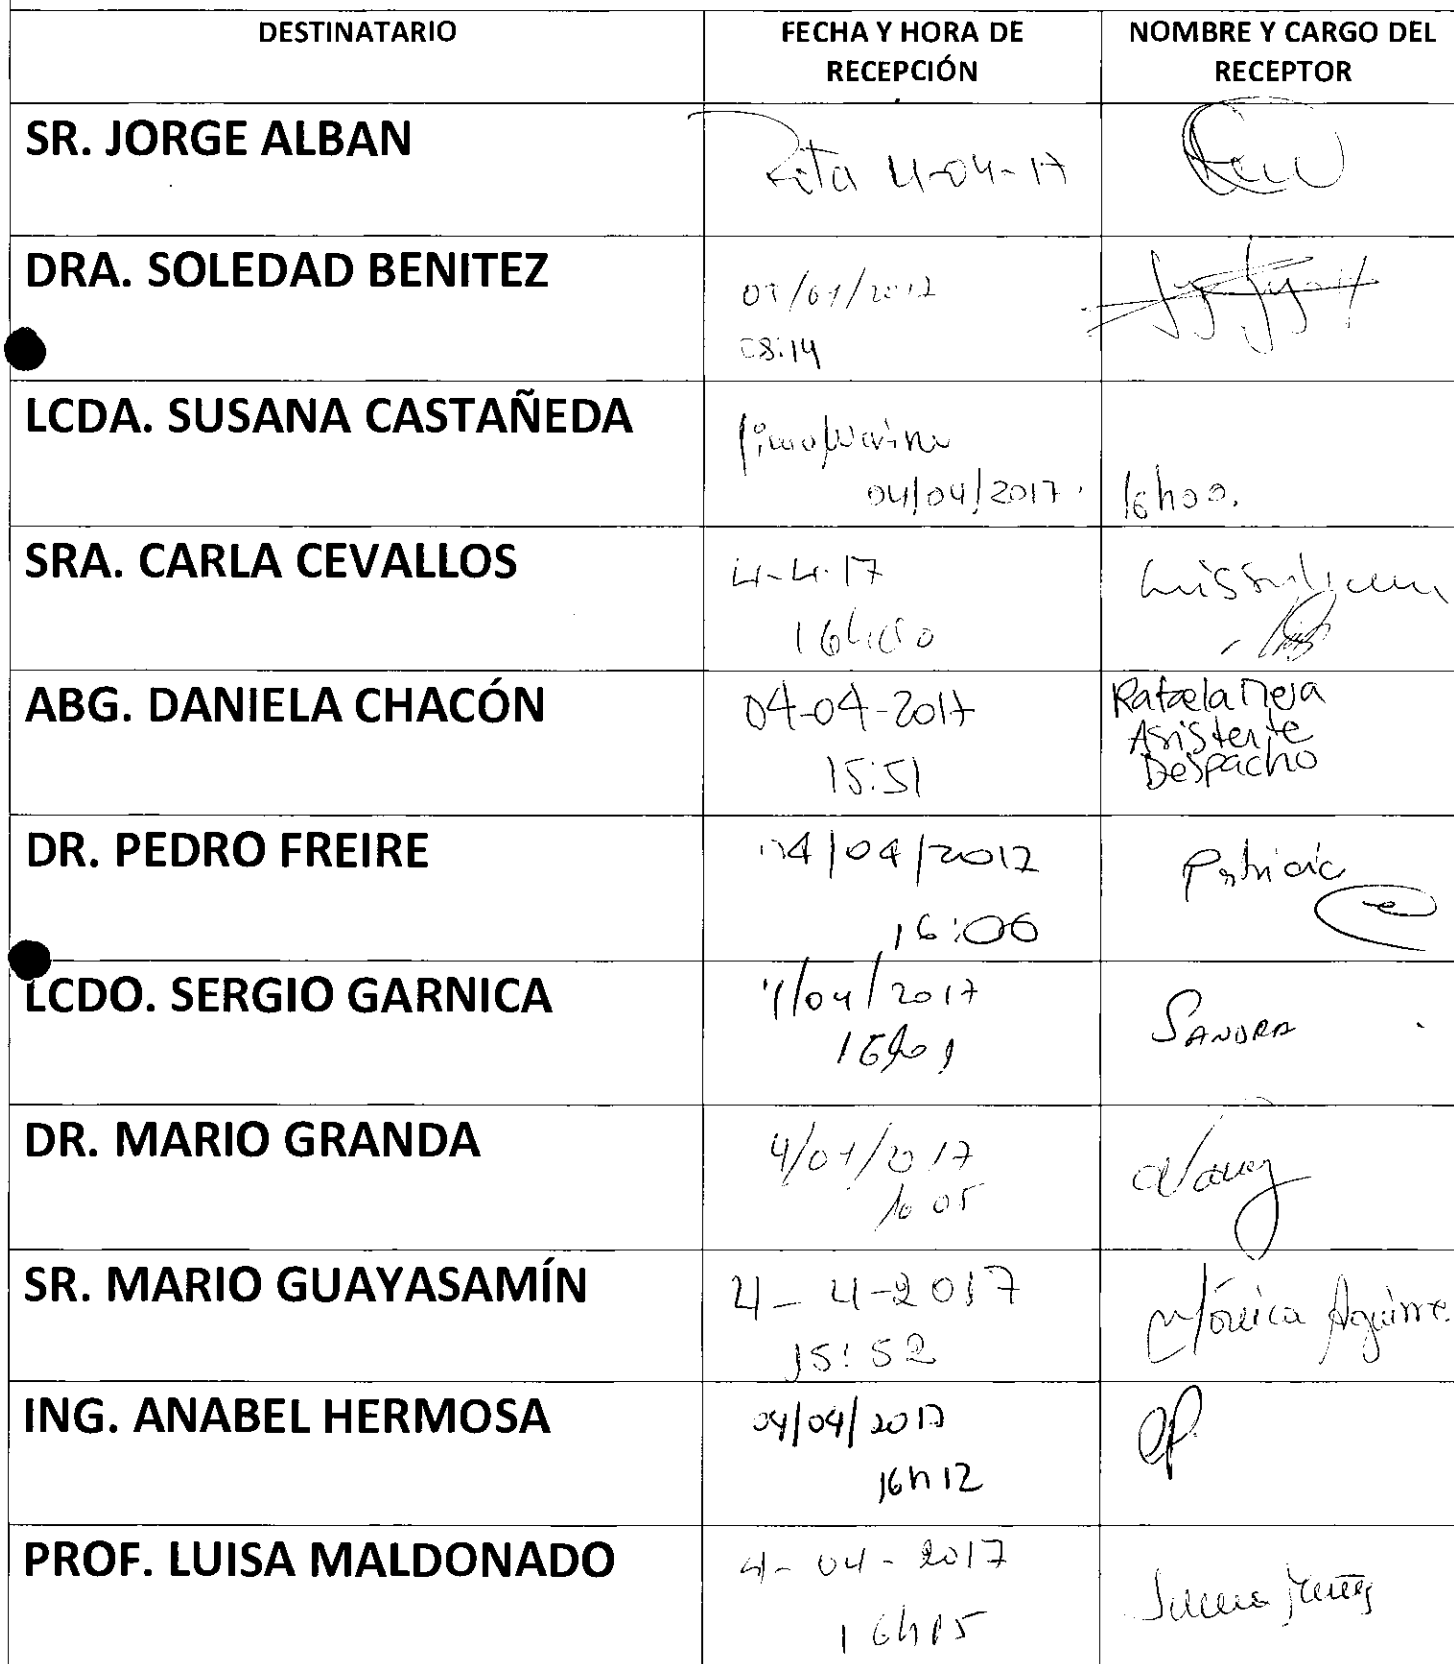 DESTINATARIO
FECHA Y HORA DE
RECEPCIÓN
NOMBRE Y CARGO DEL
RECEPTOR
SR. JORGE ALBAN
Rita 4-04-17
DRA. SOLEDAD BENITEZ
08:14
LCDA. SUSANA CASTAÑEDA
04/04/2017
16h00.
SRA. CARLA CEVALLOS
4-4-17
16h00
ABG. DANIELA CHACÓN
04-04-2017
15:51
Rafaela Meja
Asistente
Despacho
DR. PEDRO FREIRE
04/04/2017
16:06
Patricia
LCDO. SERGIO GARNICA
4/04/2017
16h01
SANDRA
DR. MARIO GRANDA
4/04/2017
16 05
SR. MARIO GUAYASAMÍN
4-4-2017
15:52
Mónica Aguirre.
ING. ANABEL HERMOSA
04/04/2017
16h12
PROF. LUISA MALDONADO
4-04-2017
16h15